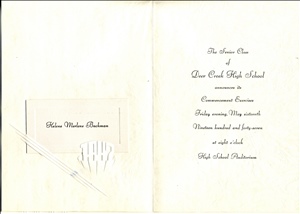 Helena Marlene Bachman
The Senior Class
of
Deer Creek High School
announces its
Commencement Exercises
Friday evening, May sixteenth
Nineteen hundred and forty-seven
at eight o'clock
High School Auditorium